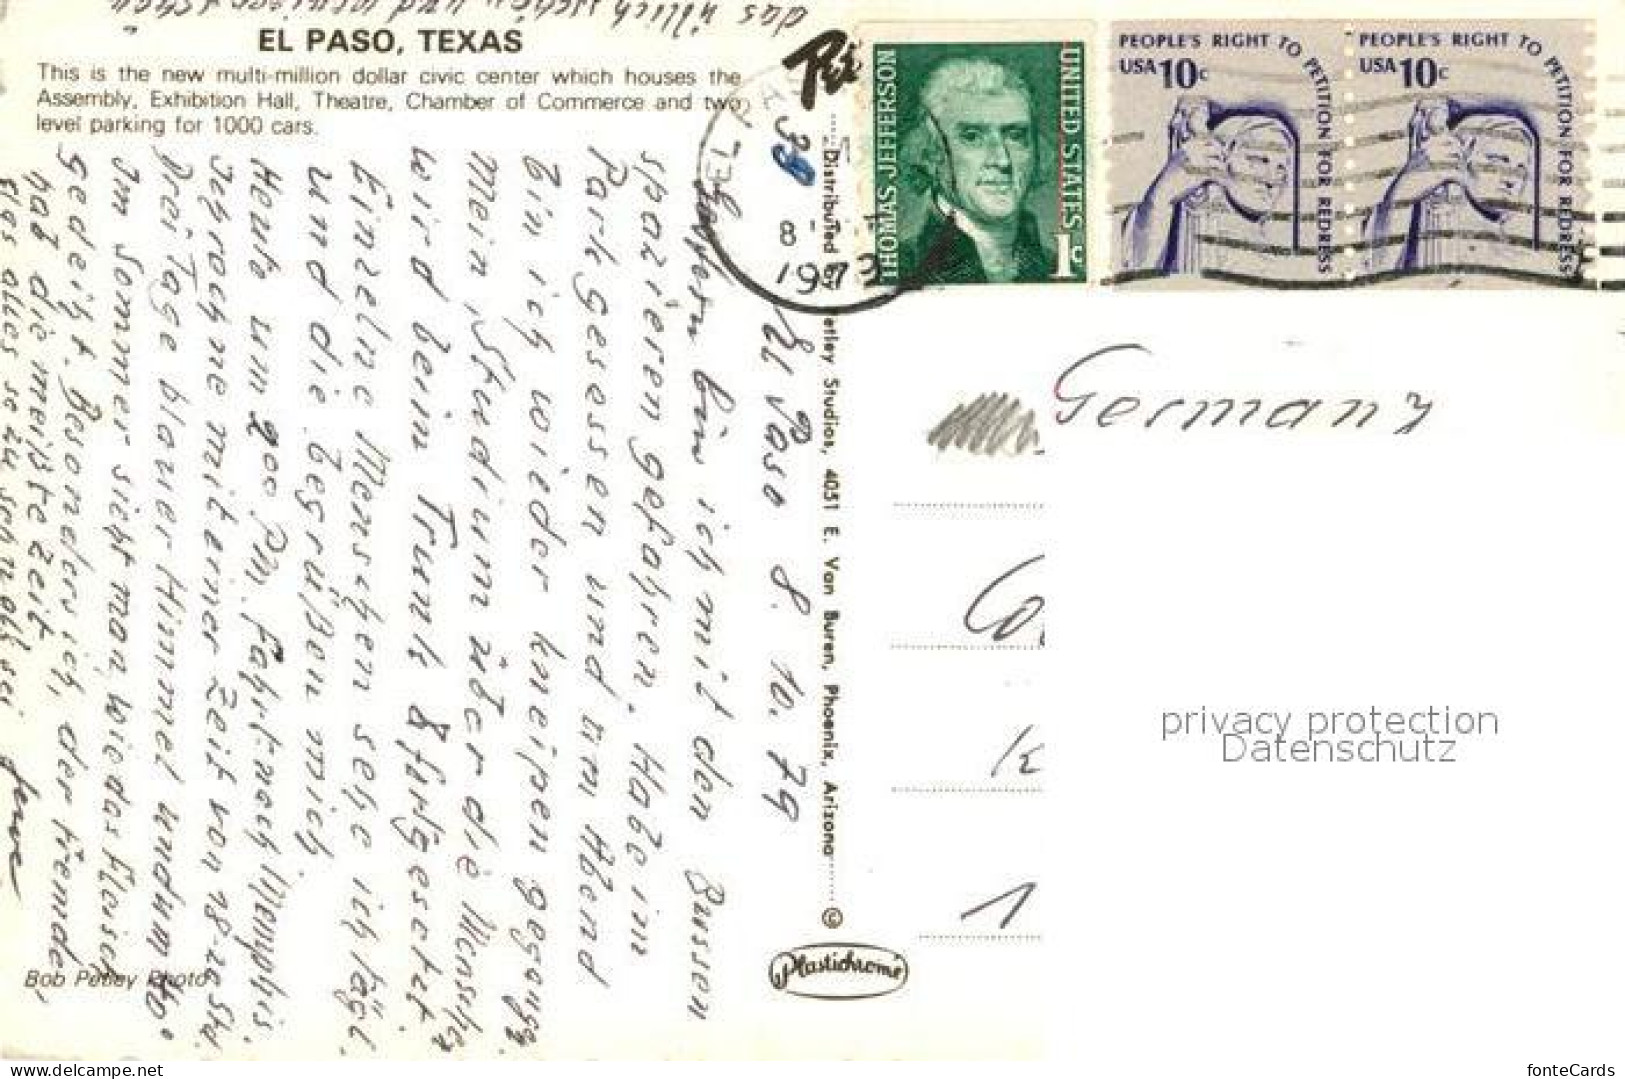 das
EL PASO, TEXAS
This is the new multi-million dollar civic center which houses the
Assembly, Exhibition Hall, Theatre, Chamber of Commerce and two
level parking for 1000 cars.
39
8
197
THOMAS JEFFERSON
UNITED STATES
1c
PEOPLE'S RIGHT TO PETITION FOR REDRESS
USA 10c
PEOPLE'S RIGHT TO PETITION FOR REDRESS
USA 10c
El Paso 8. 10. 79
Gestern bin ich mit den Bussen
spazieren gefahren. Habe im
Park gesessen und am Abend
bin ich wieder kneipen gegangen.
Mein Studium über die Menschen
wird beim Trunk fortgesetzt.
Einzelne Menschen sehe ich tägl.
und die begrüßen mich.
Heute um 200 PM. Fahrt nach Memphis.
Wochne mit einer Zeit von 18-20 Std.
Drei Tage blauer Himmel und um 40°
Im Sommer sieht man, wie das Fleisch
gedeiht. Besonders ich, der Fremde,
hab die meiste Zeit
das alles so zu
Distributed by Petley Studios, 4051 E. Van Buren, Phoenix, Arizona
©
Plastichrome
Bob Petley Photo
Germany
K
1
privacy protection
Datenschutz
www.delcampe.net
fonteCards